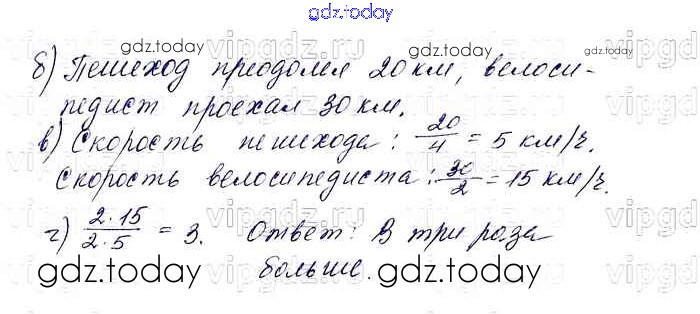 gdz.today
б) Пешеход преодолел 20 км, велоси-
педист проехал 30 км.
в) Скорость пешехода: 20/4 = 5 км/ч.
Скорость велосипедиста: 30/2 = 15 км/ч.
г) 2·15/2·5 = 3. Ответ: В три раза
больше.
gdz.today
gdz.today
gdz.today
gdz.today
gdz.today